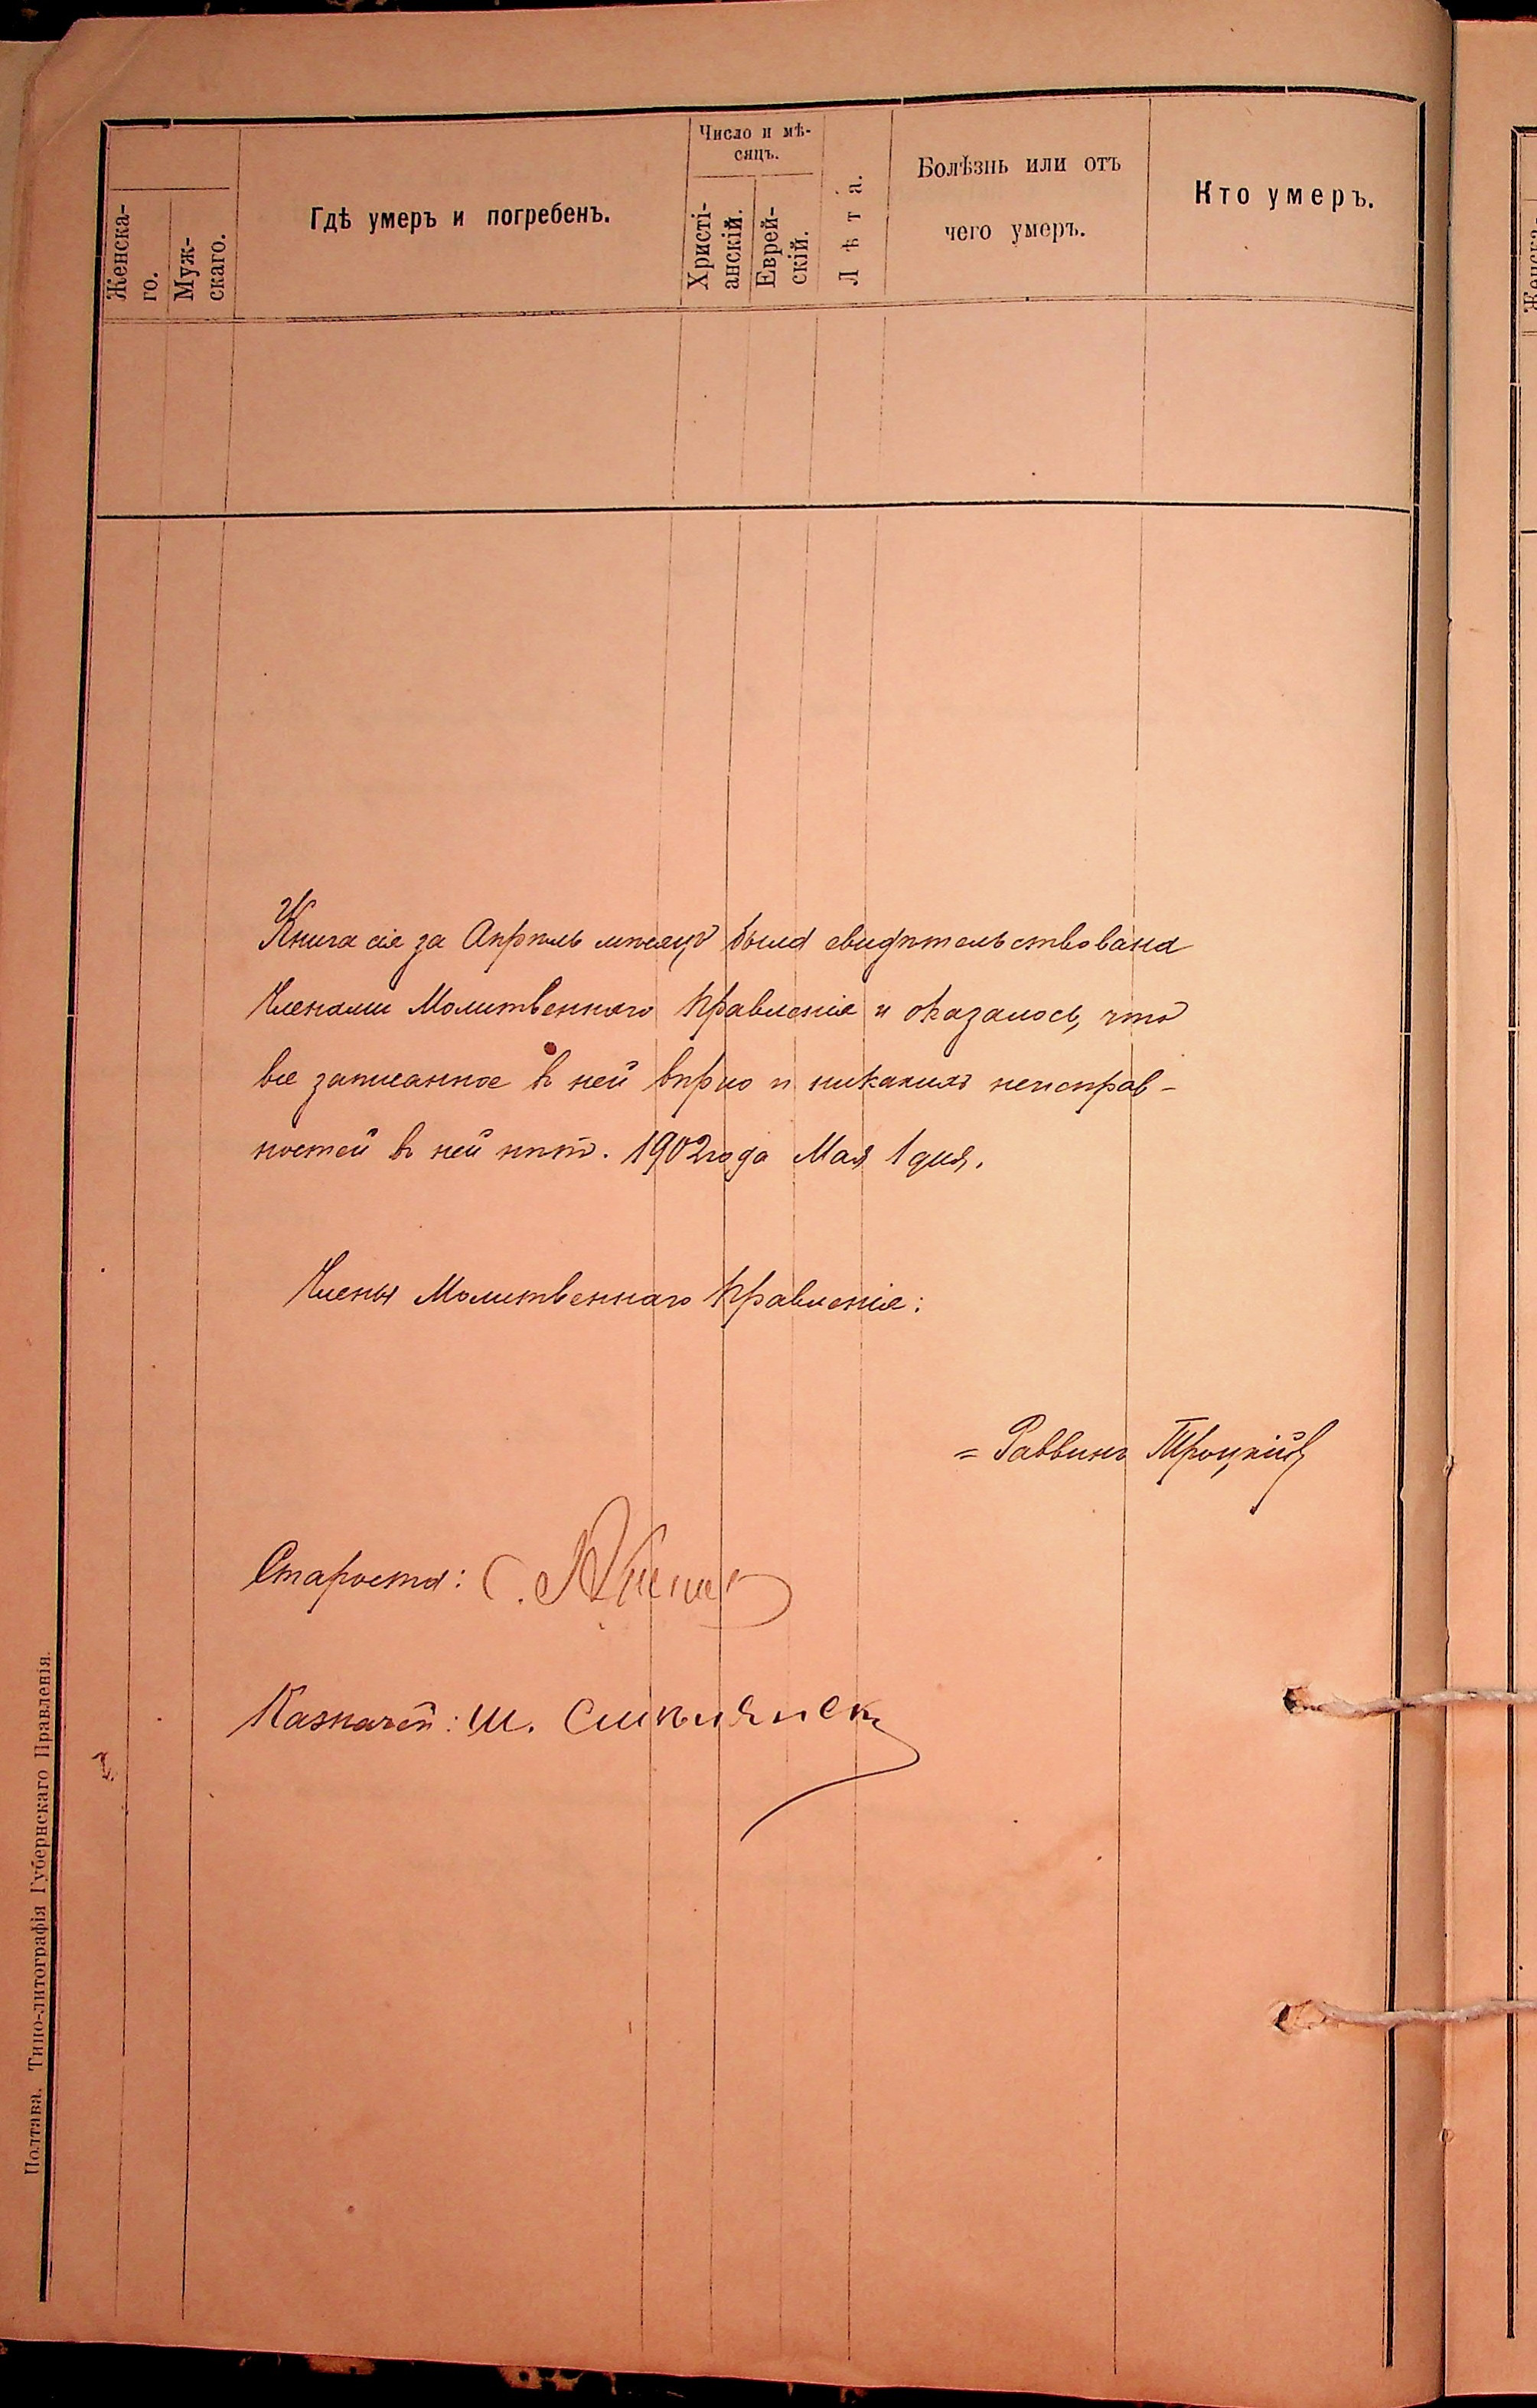 Число и мѣ-
сяцъ.
Женска-
го.
Муж-
скаго.
Гдѣ умеръ и погребенъ.
Христі-
анскій.
Еврей-
скій.
Лѣта.
Болѣзнь или отъ
чего умеръ.
Кто умеръ.
Книга сія за Апрѣль мѣсяцъ была свидѣтельствована
Членами Молитвеннаго Правленія и оказалось, что
все записанное въ ней вѣрно и никакихъ неисправ-
ностей въ ней нѣтъ. 1902 года Мая 1 дня.
Члены Молитвеннаго Правленія:
= Раввинъ Троцкій
Староста: С.
Казначей: Ш.
Полтава. Типо-литографія Губернскаго Правленія.